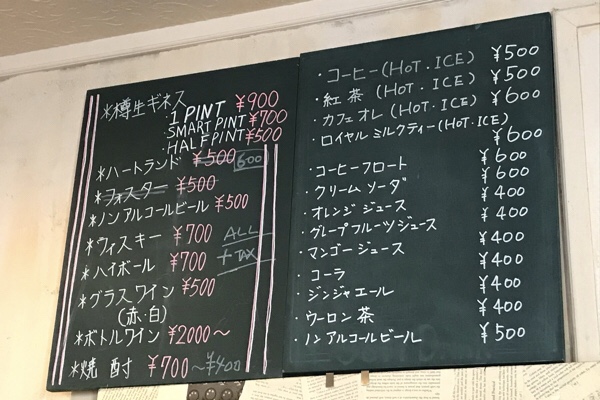 *樽生ギネス
1 PINT ¥900
SMART PINT ¥700
HALF PINT ¥500
*ハートランド ¥500 600
*フォスター ¥500
*ノンアルコールビール ¥500
*ヴィスキー ¥700 ALL
*ハイボール ¥700 +TAX
*グラスワイン ¥500
(赤・白)
*ボトルワイン ¥2000〜
*焼酎 ¥700 〜¥400
・コーヒー(HOT・ICE) ¥500
・紅茶(HOT・ICE) ¥500
・カフェオレ(HOT・ICE) ¥600
・ロイヤルミルクティー(HOT・ICE)
¥600
・コーヒーフロート ¥600
・クリームソーダ ¥600
・オレンジジュース ¥400
・グレープフルーツジュース ¥400
・マンゴージュース ¥400
・コーラ ¥400
・ジンジャエール ¥400
・ウーロン茶 ¥400
・ノンアルコールビール ¥500